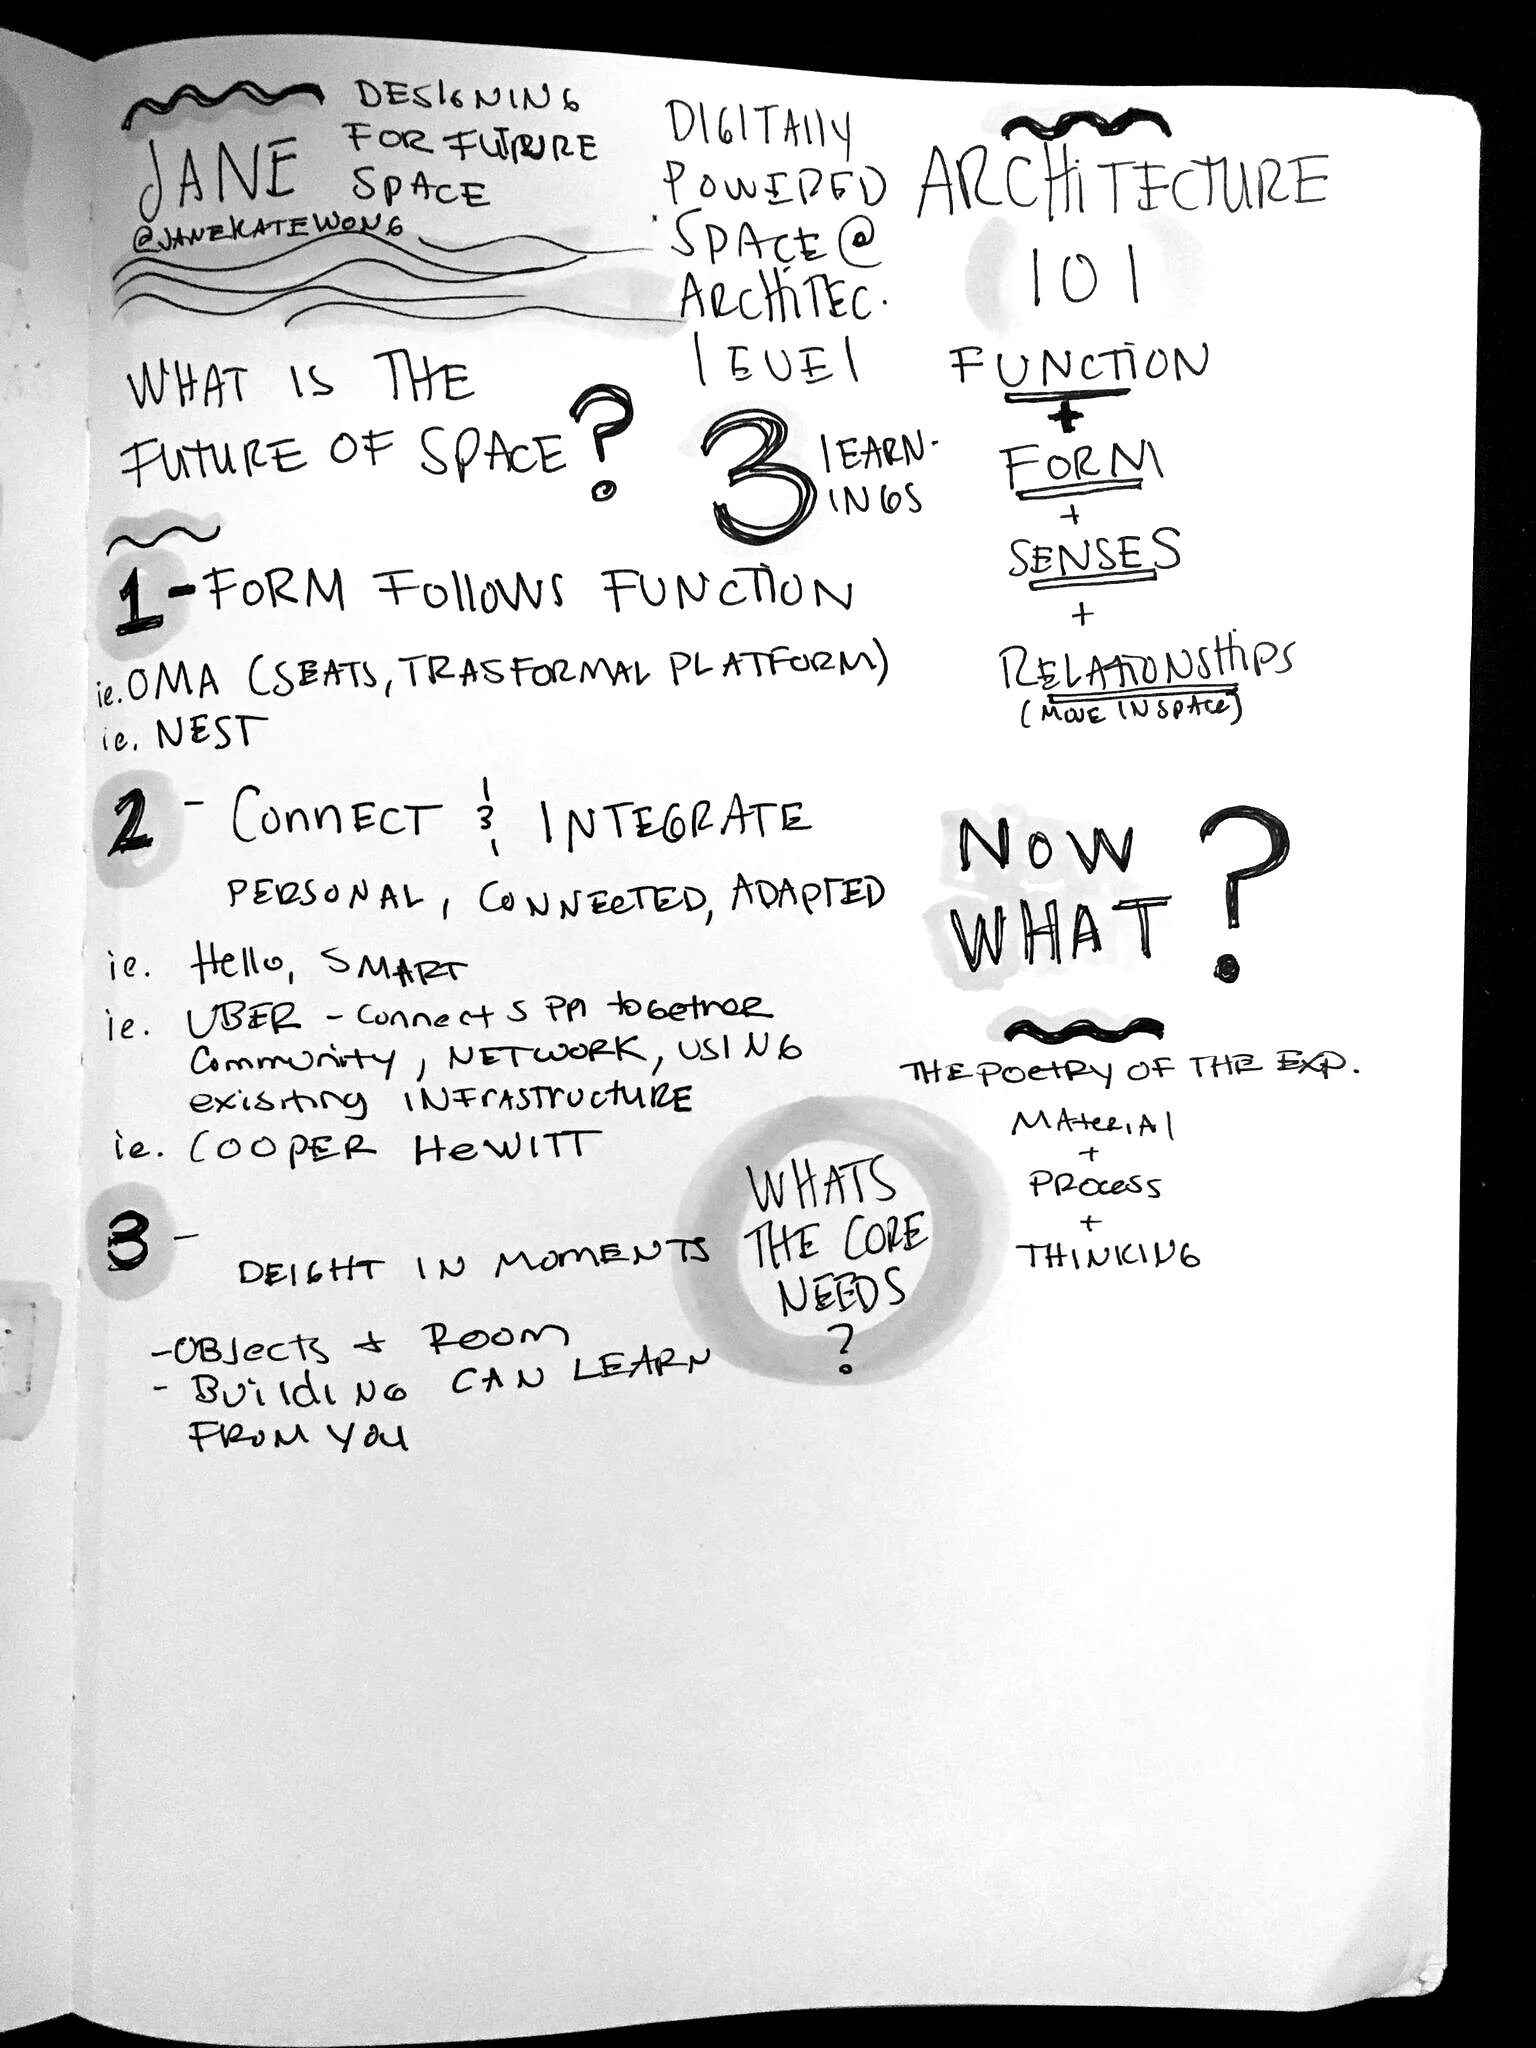 DESIGNING
FOR FUTURE
SPACE
JANE
@JANEKATEWONG
WHAT IS THE
FUTURE OF SPACE?
DIGITALLY
POWERED
SPACE @
ARCHITEC.
LEVEL
3 LEARN-
INGS
1 - FORM FOLLOWS FUNCTION
ie. OMA (SEATS, TRASFORMAL PLATFORM)
ie. NEST
2 - CONNECT & INTEGRATE
PERSONAL, CONNECTED, ADAPTED
ie. Hello, SMART
ie. UBER - connects ppl together
community, NETWORK, USING
exisiting INFRASTRUCTURE
ie. COOPER HEWITT
3 -
DEIGHT IN MOMENTS
- OBJECTS + ROOM
- BUILDING CAN LEARN
FROM YOU
WHATS
THE CORE
NEEDS
?
ARCHITECTURE
101
FUNCTION
+
FORM
+
SENSES
+
RELATIONSHIPS
(MOVE IN SPACE)
NOW
WHAT?
THE POETRY OF THE EXP.
MATERIAL
+
PROCESS
+
THINKING